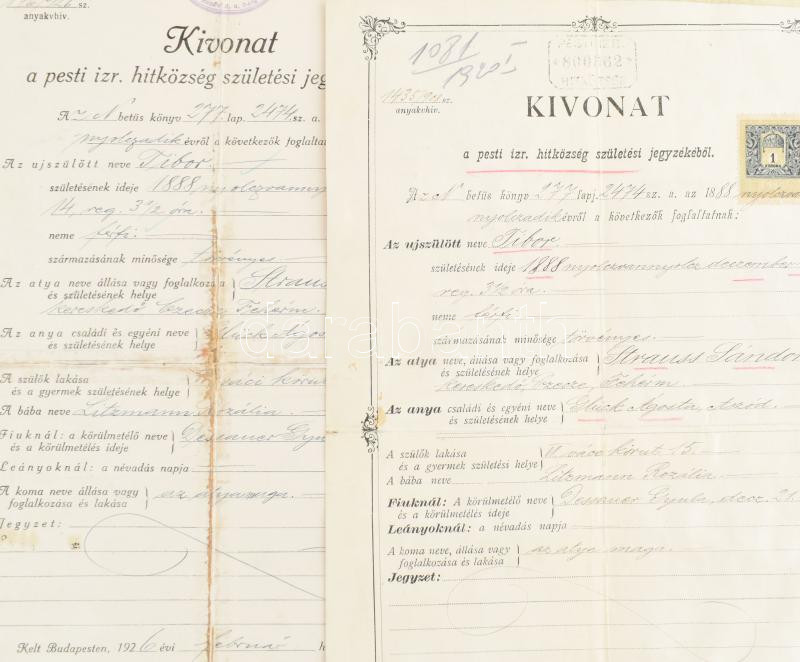 sz.
anyakvhiv.
Kivonat
a pesti izr. hitközség születési jeg
Az "N" betüs könyv 277. lap. 2474 sz. a.
nyolczadik évről a következők foglalta
Az ujszülött neve Tibor.
születésének ideje 1888 nyolczvanny
14, reg. 3 1/2 óra.
neme férfi.
származásának minősége törvényes.
Az atya neve állása vagy foglalkozása Strauss
és születésének helye
kereskedő, Czecze, Fehérm.
Az anya családi és egyéni neve Glück Ágos
és születésének helye
A szülők lakása váczi körut
és a gyermek születésének helye
A bába neve Litzmann Rozália.
Fiuknál: a körülmetélő neve Dessauer Gyu
és a körülmetélés ideje
Leányoknál: a névadás napja
A koma neve állása vagy az atya maga.
foglalkozása és lakása
Jegyzet:
Kelt Budapesten, 1926 évi február h
1081
1920 I
800562
1435/908 sz.
anyakvhiv.
KIVONAT
a pesti izr. hitközség születési jegyzékéből.
1
KORONA
Az "N" betüs könyv 277 lapj. 2474 sz. a. az 1888 nyolczva
nyolczadik évről a következők foglaltatnak:
Az ujszülött neve Tibor.
születésének ideje 1888 nyolczvannyolcz deczember
reg. 3 1/2 óra.
neme férfi.
származásának minősége törvényes.
Az atya neve, állása vagy foglalkozása Strauss Sándor
és születésének helye
kereskedő, Czecze, Fehérm.
Az anya családi és egyéni neve Glück Ágosta, Aszód.
és születésének helye
A szülők lakása VI. váczi körut 15.
és a gyermek születési helye
A bába neve Litzmann Rozália.
Fiuknál: A körülmetélő neve Dessauer Gyula, decz. 21.
és a körülmetélés ideje
Leányoknál: a névadás napja
A koma neve, állása vagy az atya maga.
foglalkozása és lakása
Jegyzet:
darabanth